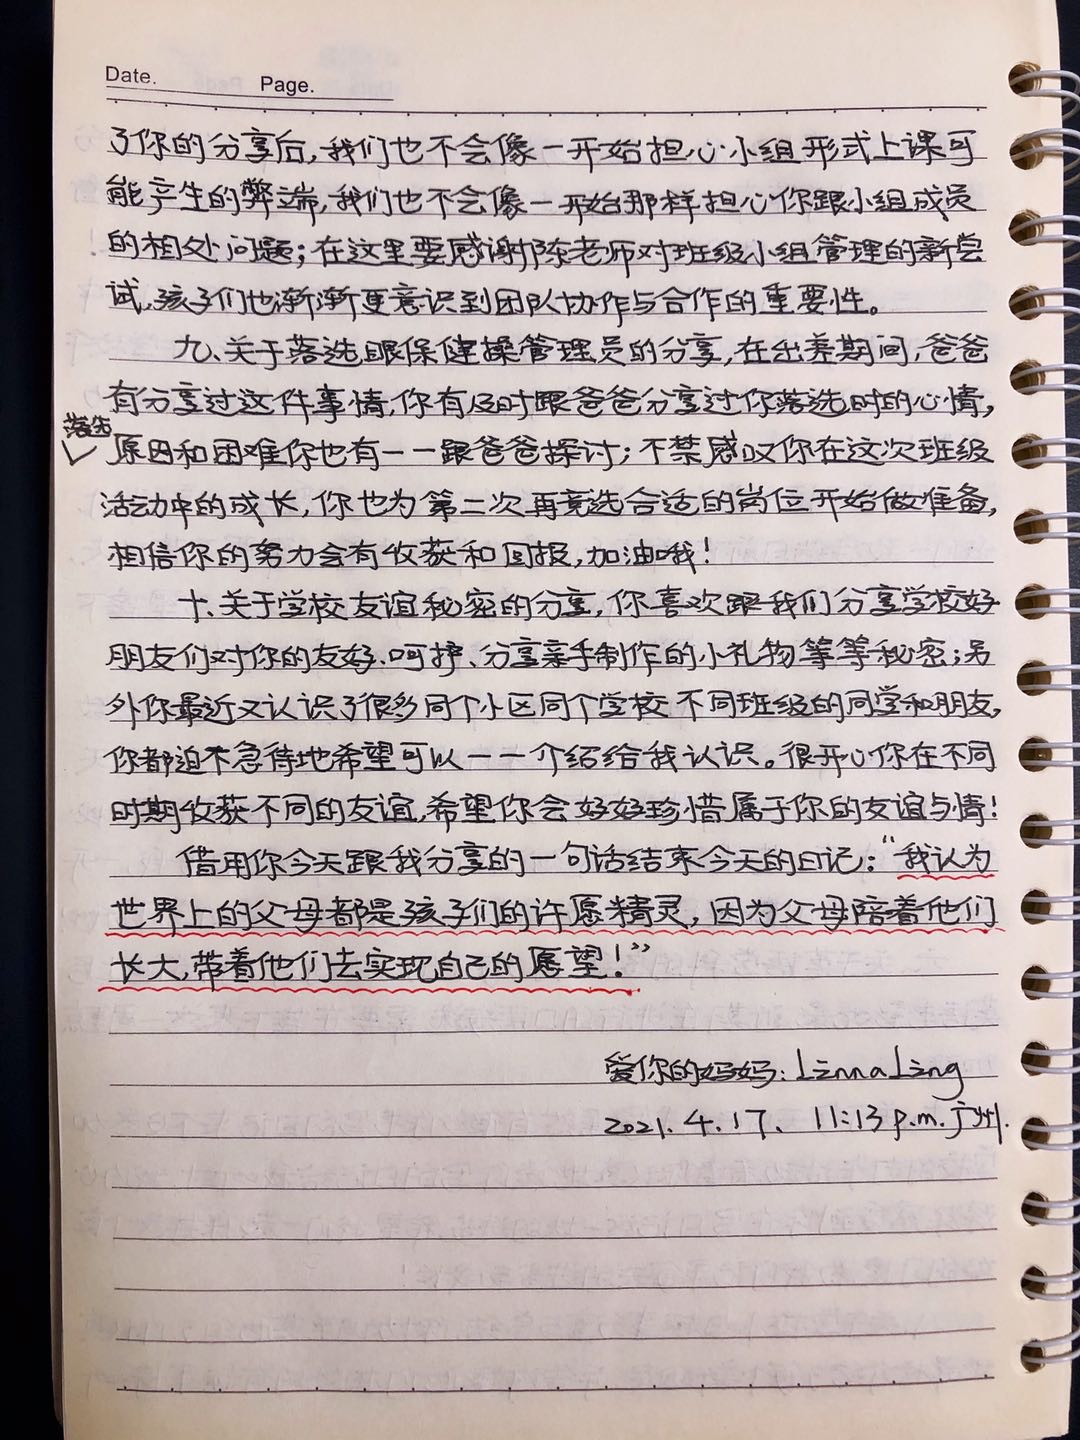 Date.
Page.
了你的分享后,我们也不会像一开始担心小组形式上课可
能产生的弊端,我们也不会像一开始那样担心你跟小组成员
的相处问题;在这里要感谢陈老师对班级小组管理的新尝
试,孩子们也渐渐更意识到团队协作与合作的重要性。
九、关于落选眼保健操管理员的分享,在出差期间,爸爸
有分享过这件事情,你有及时跟爸爸分享过你落选时的心情,
落选
原因和困难你也有一一跟爸爸探讨;不禁感叹你在这次班级
活动中的成长,你也为第二次再竞选合适的岗位开始做准备,
相信你的努力会有收获和回报,加油哦!
十、关于学校友谊秘密的分享,你喜欢跟我们分享学校好
朋友们对你的友好、呵护、分享亲手制作的小礼物等等秘密;另
外你最近又认识了很多同个小区同个学校不同班级的同学和朋友,
你都迫不急待地希望可以一一介绍给我认识。很开心你在不同
时期收获不同的友谊,希望你会好好珍惜属于你的友谊与情!
借用你今天跟我分享的一句话结束今天的日记:“我认为
世界上的父母都是孩子们的许愿精灵,因为父母陪着他们
长大,带着他们去实现自己的愿望!”
爱你的妈妈:Linna Ling
2021.4.17、11:13 p.m.广州.